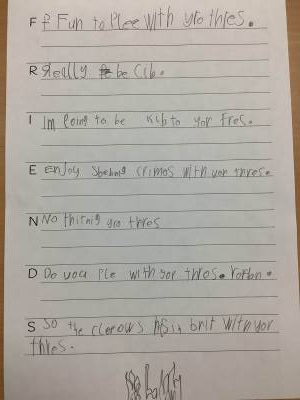 F Fun to Plee with yro thres.
R Really be Cib.
I Im Going to be Kib to yor fres.
E Enjoy Sbebing crimos with yor threse.
N No thirng yro thres
D Do you Ple with yor thres. rorbn.
S So the clerours is brit with yor
thres.